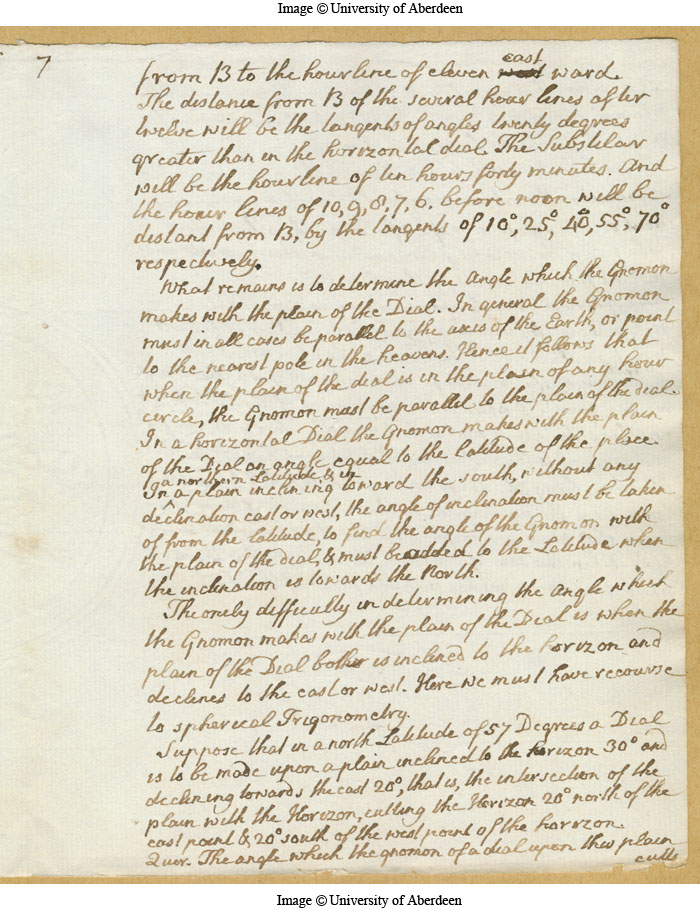 Image © University of Aberdeen
7
from B to the hour line of eleven west east ward.
The distance from B of the several hour lines after
twelve will be the tangents of angles twenty degrees
greater than in the horizontal dial. The Substilar
will be the hour line of ten hours forty minutes. And
the hour lines of 10, 9, 8, 7, 6. before noon will be
distant from B, by the tangents of 10°, 25°, 40°, 55°, 70°
respectively.
What remains is to determine the Angle which the Gnomon
makes with the plain of the Dial. In general the Gnomon
must in all cases be parallel to the axis of the Earth, or point
to the nearest pole in the heavens. Hence it follows that
when the plain of the dial is in the plain of any hour
circle, the Gnomon must be parallel to the plain of the dial.
In a horizontal Dial the Gnomon makes with the plain
of the Dial an angle equal to the latitude of the place.
In a northern Latitude & in
a plain inclining toward the south, without any
declination east or west, the angle of inclination must be taken
of from the latitude, to find the angle of the Gnomon with
the plain of the dial, & must be added to the Latitude when
the inclination is towards the North.
The onely difficulty in determining the Angle which
the Gnomon makes with the plain of the Dial is when the
plain of the Dial both is inclined to the horizon and
declines to the east or west. Here we must have recourse
to spherical Trigonometry.
Suppose that in a north Latitude of 57 Degrees a Dial
is to be made upon a plain inclined to the horizon 30° and
declining towards the east 20°, that is, the intersection of the
plain with the Horizon, cutting the Horizon 20° north of the
east point & 20° south of the west point of the horizon.
Quer. The angle which the gnomon of a dial upon this plain
cutts
Image © University of Aberdeen